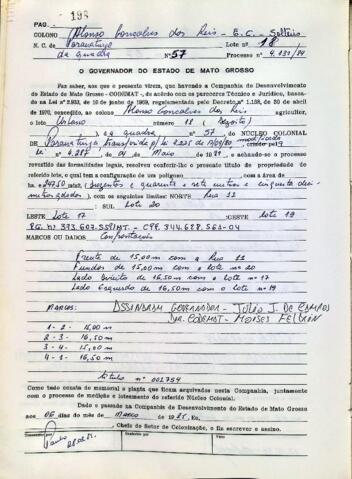 198
PAG.
COLONO Afonso Goncalves dos Reis - E.C. Solteiro
N. C. de Paranatinga Lote nº 18
da quadra Nº 57 Processo nº 4.131/84
O GOVERNADOR DO ESTADO DE MATO GROSSO
Faz saber, aos que o presente virem, que havendo a Companhia de Desenvolvimento
do Estado de Mato Grosso - CODEMAT -, de acordo com os pareceres Técnico e Jurídico, basea-
do na Lei nº 2.933, de 16 de junho de 1969, regulamentada pelo Decreto nº 1.138, de 30 de abril
de 1970, concedido, ao colono Afonso Goncalves dos Reis agricultor,
o lote Urbano nº 18 (Dezoito)
da quadra nº 57 do NÚCLEO COLONIAL
DE Paranatinga criado pela
Lei nº de 04 / Maio e achando-se o processo
revestido das formalidades legais, resolveu conferir-lhe o presente título de propriedade do
referido lote, o qual tem a configuração de um polígono com a área de
ha. e 247,50 (duzentos e quarenta e sete metros e cinquenta deci-
metros quadrados), com os seguintes limites: NORTE Rua 11
SUL Lote 20
LESTE Lote 17 OESTE Lote 19
R.G. nº 373.607-SSP/MT. - C.P.F. 344.628.561-04
MARCOS OU DADOS Confrontação
Frente de 15,00m com a Rua 11
Fundos de 15,00m com o lote nº 20
Lado Direito de 16,50m com o lote nº 17
Lado Esquerdo de 16,50m com o lote nº 19
MARCOS: ASSINARAM GOVERNADOR - JULIO J. DE CAMPOS
CODEMAT - MOISES FELTRIN
2 - 3 - 16,50m
3 - 4 - 15,00m
4 - 1 - 16,50m
Título nº 001754
Como tudo consta de memorial e planta que ficam arquivados nesta Companhia, juntamente
com o processo de medição e loteamento do referido Núcleo Colonial.
Dado e passado na Companhia de Desenvolvimento do Estado de Mato Grosso
aos 06 dias do mês de Março de 1985. Eu,
, Chefe do Setor de Colonização, o fiz escrever e assino.